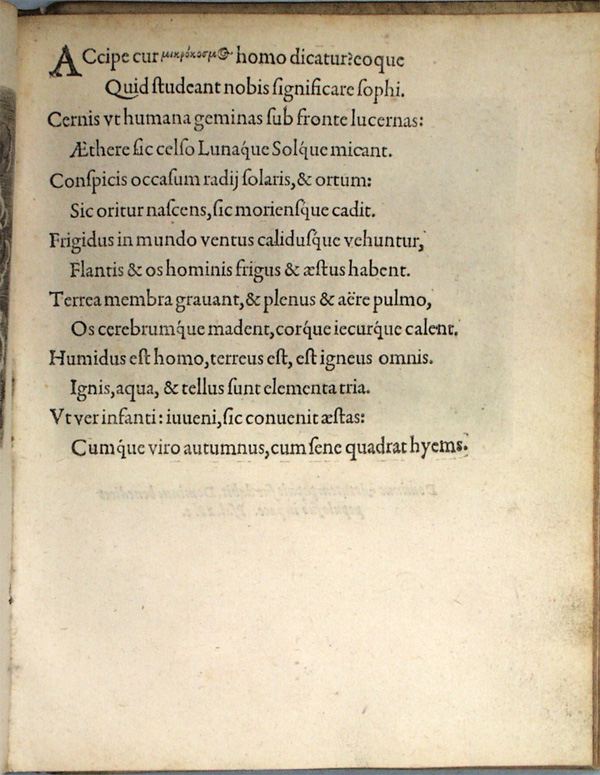 ACcipe cur μικρόκοσμ⊙ homo dicatur? eoque
Quid ſtudeant nobis ſignificare ſophi.
Cernis vt humana geminas ſub fronte lucernas:
Æthere ſic celſo Lunaq́ue Solq́ue micant.
Conſpicis occaſum radij ſolaris, & ortum:
Sic oritur naſcens, ſic morienſque cadit.
Frigidus in mundo ventus calidusq́ue vehuntur,
Flantis & os hominis frigus & æſtus habent.
Terrea membra grauant, & plenus & aëre pulmo,
Os cerebrumq́ue madent, corq́ue iecurq́ue calent.
Humidus eſt homo, terreus eſt, eſt igneus omnis.
Ignis, aqua, & tellus ſunt elementa tria.
Vt ver infanti: iuueni, ſic conuenit æſtas:
Cumq́ue viro autumnus, cum ſene quadrat hyems.